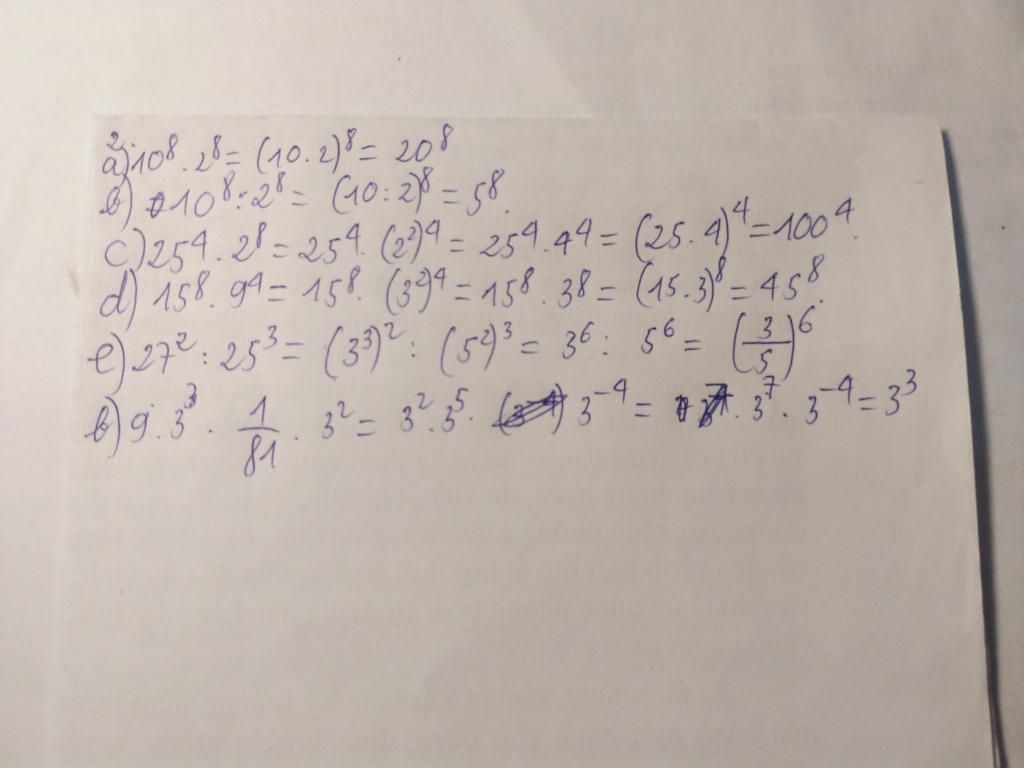 2
a) 10⁸ . 2⁸ = (10 . 2)⁸ = 20⁸
b) 10⁸ : 2⁸ = (10 : 2)⁸ = 5⁸.
c) 25⁴ . 2⁸ = 25⁴ . (2²)⁴ = 25⁴ . 4⁴ = (25 . 4)⁴ = 100⁴.
d) 15⁸ . 9⁴ = 15⁸ . (3²)⁴ = 15⁸ . 3⁸ = (15 . 3)⁸ = 45⁸.
e) 27² : 25³ = (3³)² : (5²)³ = 3⁶ : 5⁶ = (3/5)⁶
b) 9 . 3³ . 1/81 . 3² = 3² . 3⁵ . 3⁻⁴ = 3⁷ . 3⁻⁴ = 3³